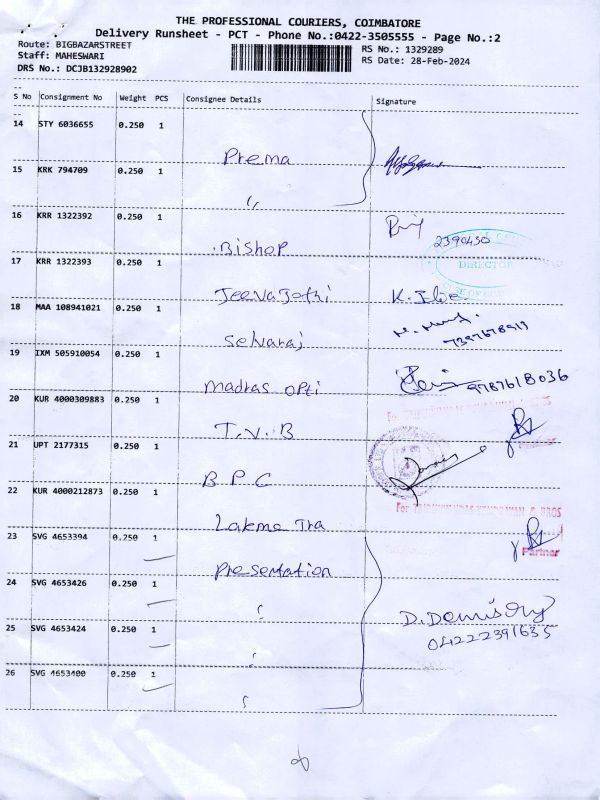 THE PROFESSIONAL COURIERS, COIMBATORE
Delivery Runsheet - PCT - Phone No.:0422-3505555 - Page No.:2
Route: BIGBAZARSTREET
RS No.: 1329289
Staff: MAHESWARI
RS Date: 28-Feb-2024
DRS No.: DCJB132928902
S No Consignment No Weight PCS Consignee Details Signature
14 STY 6036655 0.250 1
Prema
15 KRK 794709 0.250 1
"
16 KRR 1322392 0.250 1
Bishop
2390430
17 KRR 1322393 0.250 1
DIRECTOR
JeevaJothi
18 MAA 108941021 0.250 1
Selvaraj
19 IXM 505910054 0.250 1
madras opti
9787618036
20 KUR 4000309883 0.250 1
T.V.B
Partner
21 UPT 2177315 0.250 1
B.P.C
22 KUR 4000212873 0.250 1
For
BROS
Lakme Tra
23 SVG 4653394 0.250 1
Partner
Presentation
24 SVG 4653426 0.250 1
25 SVG 4653424 0.250 1
04222391635
26 SVG 4653400 0.250 1